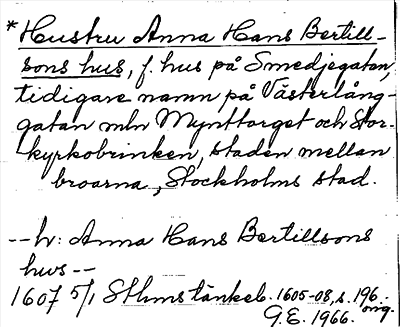 *Hustru Anna Hans Bertill-
sons hus, f. hus på Smedjegatan,
tidigare namn på Västerlång-
gatan mln Mynttorget och Stor-
kyrkobrinken, staden mellan
broarna, Stockholms stad.
--h: Anna Hans Bertillsons
hus--
1607 5/1 Sthms tänkeb. 1605-08, s. 196.
orig.
G.E. 1966.